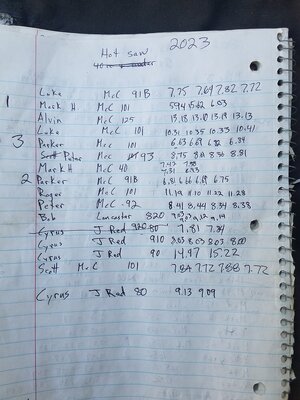 Hot saw 2023
Luke McC 91B 7.75 7.69 7.82 7.72
1 Mark H McC 101 5.94 5.62 6.03
Alvin McC 125 13.18 13.10 13.19 13.13
Luke McC 101 10.31 10.35 10.33 10.41
3 Parker McC 101 6.63 6.61 6.82 6.84
Peter McC 93 8.75 8.81 8.86 8.81
Mark H McC 40 7.43 7.58
7.31 6.93
2 Parker McC 91B 6.81 6.66 6.69 6.75
Roger McC 101 11.19 11.10 11.22 11.28
Peter McC -92 8.41 8.44 8.34 8.38
Bob Lancaster 820 9.19
Cyrus J Red 80 7.81 7.84
Cyrus J Red 910 8.03 8.03 8.03 8.00
Cyrus J Red 90 14.97 15.22
Scott McC 101 7.84 7.72 7.88 7.72
Cyrus J Red 80 9.13 9.09